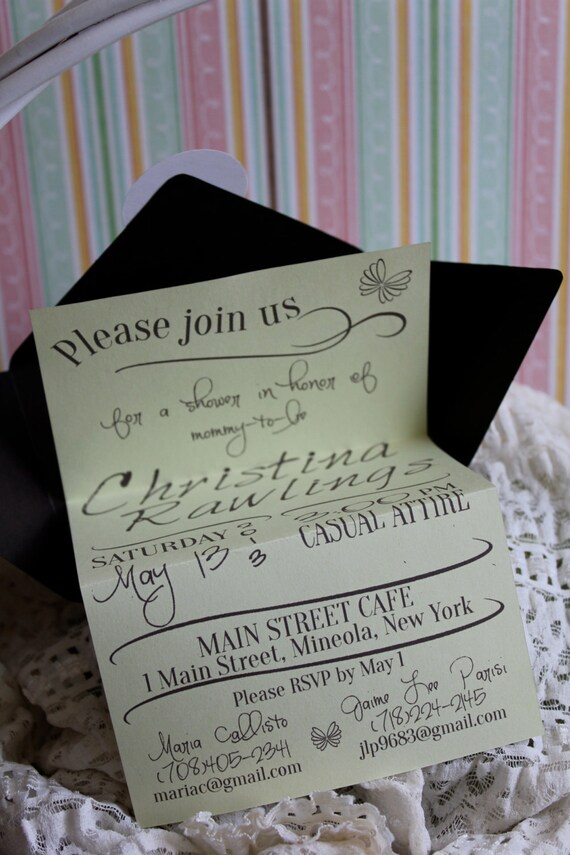 Please join us
for a shower in honor of
mommy-to-be
Christina
Rawlings
SATURDAY 3:00 PM
May 13 2013 CASUAL ATTIRE
MAIN STREET CAFE
1 Main Street, Mineola, New York
Please RSVP by May 1
Maria Callisto
(708)405-2341
mariac@gmail.com
Jaime Lee Parisi
(718)224-2145
jlp9683@gmail.com